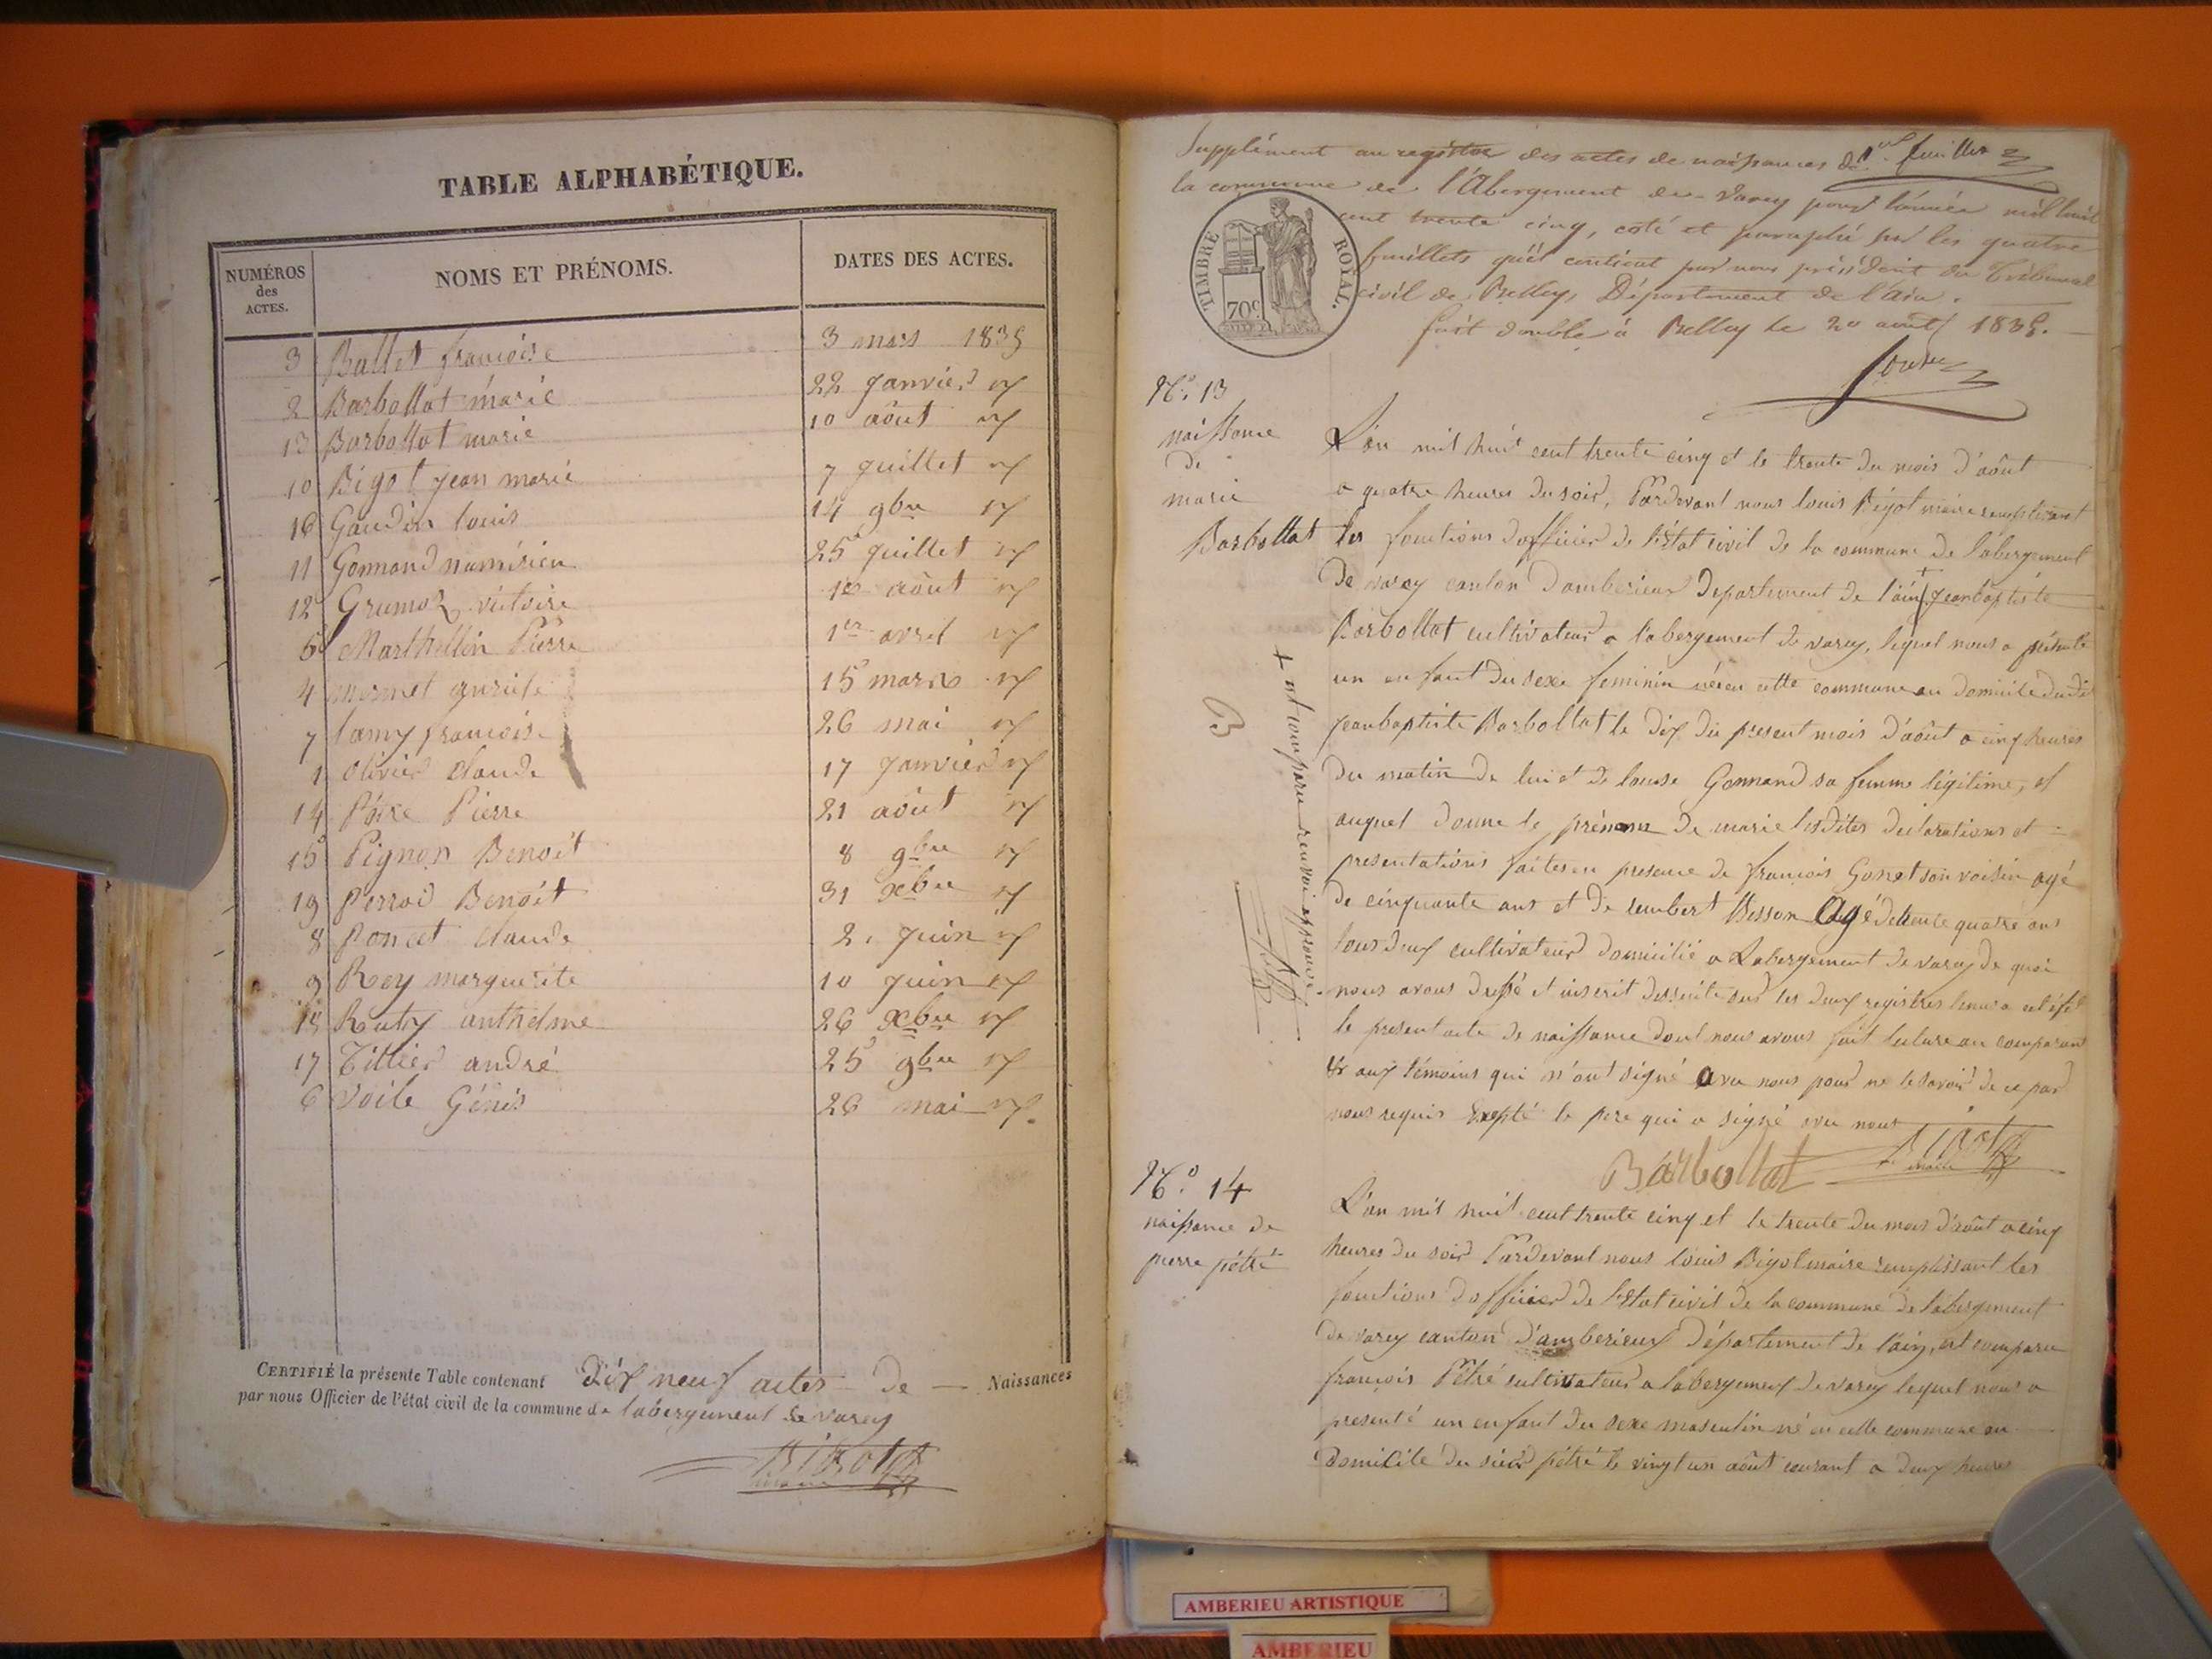 TABLE ALPHABÉTIQUE.
NUMÉROS des ACTES.
NOMS ET PRÉNOMS.
DATES DES ACTES.
3 Ballet françoise 3 mars 1835
2 Barbollat marie 22 Janvier
13 Barbollat marie 10 août
10 Bigot Jean marie 7 Juillet
16 Gaudin louis 14 9bre
11 Gonnand 25 Juillet
12 Grumoz victoire août
5 Marthellin Pierre 1er avril
4 15 mars
7 lamy françoise 26 mai
1 Olivier Claude 17 Janvier
14 Pétré Pierre 21 août
15 Pignon Benoit 8 9bre
19 Perrod Benoit 31 xbre
8 Poncet Claude 2 Juin
9 Rey marguerite 10 Juin
18 anthelme 26 xbre
17 Tillier andré 25 9bre
6 Voile Génis 26 mai
CERTIFIÉ la présente Table contenant dix neuf actes de Naissances
par nous Officier de l'état civil de la commune de labergement de varey
BIGOT
Supplément au registre des actes de naissances de
la commune de l'Abergement de Varey pour l'année mil huit
cent trente cinq, coté et paraphé sur les quatre
feuillets qu'il contient par nous président du Tribunal
civil de Belley, Département de l'ain.
fait double à Belley le 20 août 1835.
TIMBRE ROYAL.
70c
No. 13
naissance
de
marie
Barbollat
L'an mil huit cent trente cinq et le trente du mois d'août
a quatre heures du soir, Pardevant nous louis Bigot maire remplissant
les fonctions d'officier de l'Etat civil de la commune de l'abergement
de varey canton d'amberieux Departement de l'ain + Jeanbaptiste
Barbollat cultivateur a l'abergement de varey, lequel nous a présenté
un enfant du sexe feminin né en cette commune au Domicile dudit
Jeanbaptiste Barbollat le dix du present mois d'août a cinq heures
du matin de lui et de louise Gonnand sa femme légitime, et
auquel donne le prénom de marie lesdites declarations et
presentations faites en presence de françois Gonet son voisin agé
de cinquante ans et de Besson Agé de trente quatre ans
tous deux cultivateur domicilié a Labergement de varey de quoi
nous avons dressé et inscrit desuite sur les deux registres tenus a cet éfet
le present acte de naissance dont nous avons fait lecture au comparant
& aux témoins qui n'ont signé avec nous pour ne le savoir de ce par
nous requis Exepté le pere qui a signé avec nous
+ est comparu renvoi approuvé
B
Barbollat
BIGOT
No. 14
naissance de
pierre pétré
L'an mil huit cent trente cinq et le trente du mois d'août a cinq
heures du soir Pardevant nous louis Bigot maire remplissant les
fonctions d'officier de l'Etat civil de la commune de l'abergement
de varey canton d'amberieux Département de l'ain, est comparu
françois Pétré cultivateur a labergement de varey lequel nous a
presenté un enfant du sexe masculin né en cette commune au
Domicile du sieur pétré le vingt un août courant a deux heures
AMBERIEU ARTISTIQUE
AMBERIEU